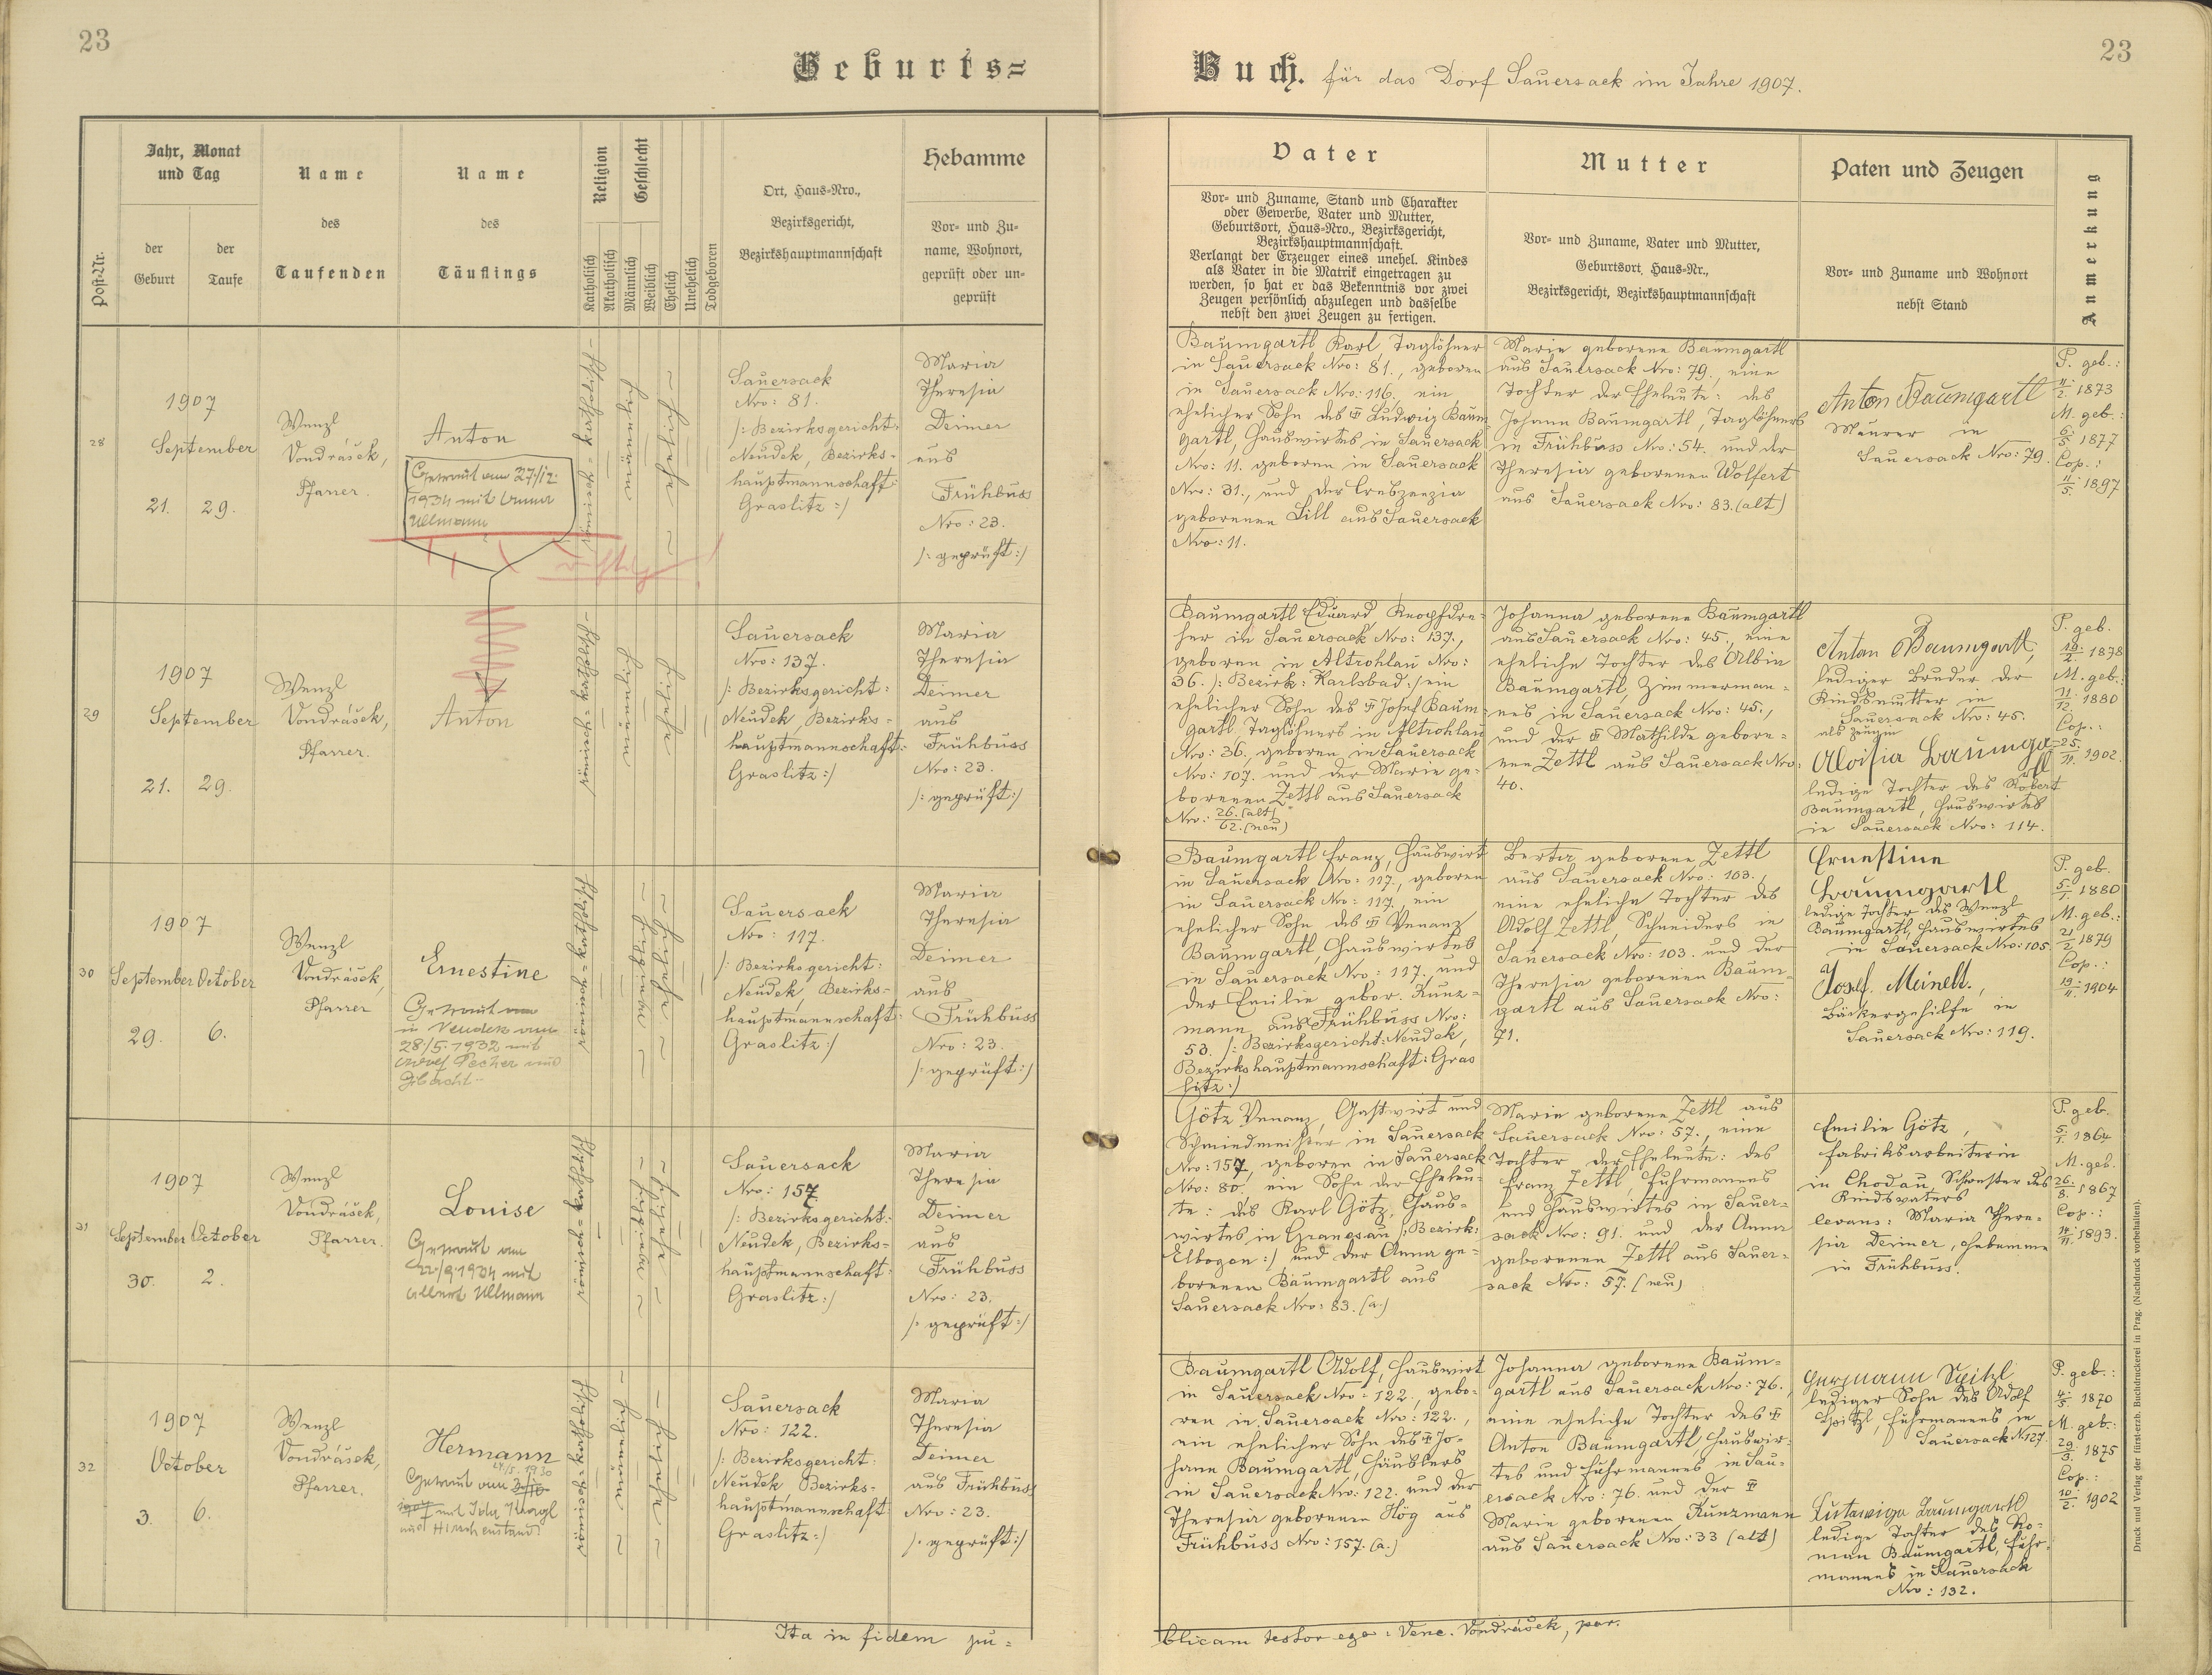 23
23
Geburts=
Buch. für das Dorf Sauersack im Jahre 1907.
Post-Nr.
Jahr, Monat
und Tag
der
Geburt
der
Taufe
Name
des
Taufenden
Name
des
Täuflings
Religion
Katholisch
Akatholisch
Geschlecht
Männlich
Weiblich
Ehelich
Unehelich
Todgeboren
Ort, Haus=Nro.,
Bezirksgericht,
Bezirkshauptmannschaft
Hebamme
Vor= und Zu=
name, Wohnort,
geprüft oder un=
geprüft
Vater
Vor= und Zuname, Stand und Charakter
oder Gewerbe, Vater und Mutter,
Geburtsort, Haus=Nro., Bezirksgericht,
Bezirkshauptmannschaft.
Verlangt der Erzeuger eines unehel. Kindes
als Vater in die Matrik eingetragen zu
werden, so hat er das Bekenntnis vor zwei
Zeugen persönlich abzulegen und dasselbe
nebst den zwei Zeugen zu fertigen.
Mutter
Vor= und Zuname, Vater und Mutter,
Geburtsort, Haus=Nr.,
Bezirksgericht, Bezirkshauptmannschaft
Paten und Zeugen
Vor= und Zuname und Wohnort
nebst Stand
Anmerkung
28
1907
September
21. 29.
Wenzl
Vondrášek,
Pfarrer.
Anton
Getraut am 27./12.
1934 mit Anna
Ullmann
richtig
römisch=katholisch
männlich
eheliche
Sauersack
Nro: 81.
/: Bezirksgericht:
Neudek, Bezirks=
hauptmannschaft:
Graslitz :/
Maria
Theresia
Deimer
aus
Frühbuss
Nro: 23.
/: geprüft:/
Baumgartl Karl, Taglöhner
in Sauersack Nro: 81., geboren
in Sauersack Nro: 116., ein
ehelicher Sohn des † Ludwig Baum=
gartl, Hauswirtes in Sauersack
Nro: 11. geboren in Sauersack
Nro: 31., und der Creszenzia
geborenen Lill aus Sauersack
Nro: 11.
Marie geborene Baumgartl
aus Sauersack Nro: 79., eine
Tochter der Eheleute: des
Johann Baumgartl, Taglöhners
in Frühbuss Nro: 54. und der
Theresia geborenen Wolfert
aus Sauersack Nro: 83. (alt)
Anton Baumgartl
Maurer in
Sauersack Nro: 79.
P. geb.:
11./2. 1873
M. geb.:
6./5. 1877
Cop.:
11./5. 1897
29
1907
September
21. 29.
Wenzl
Vondrášek,
Pfarrer.
Anton
römisch=katholisch
männlich
eheliche
Sauersack
Nro: 137.
/: Bezirksgericht:
Neudek, Bezirks=
hauptmannschaft:
Graslitz :/
Maria
Theresia
Deimer
aus
Frühbuss
Nro: 23.
/: geprüft:/
Baumgartl Eduard, Knopfdre=
her in Sauersack Nro: 137.,
geboren in Altrohlau Nro:
36. /: Bezirk: Karlsbad :/ ein
ehelicher Sohn des † Josef Baum=
gartl, Taglöhners in Altrohlau
Nro: 36., geboren in Sauersack
Nro: 107. und der Marie ge=
borenen Zettl aus Sauersack
Nro: 26. (alt)
62. (neu)
Johanna geborene Baumgartl
aus Sauersack Nro: 45., eine
eheliche Tochter des Albin
Baumgartl, Zimmerman=
nes in Sauersack Nro: 45.,
und der † Mathilde gebore=
nen Zettl aus Sauersack Nro:
40.
Anton Baumgartl,
lediger Bruder der
Kindsmutter in
Sauersack Nro: 45.
als Zeugin
Aloisia Baumgartl
ledige Tochter des Robert
Baumgartl, Hauswirtes
in Sauersack Nro: 114.
P. geb.
/2. 1878
M. geb.:
11./12. 1880
Cop.:
25./11. 1902.
30
1907
September October
29. 6.
Wenzl
Vondrášek,
Pfarrer
Ernestine
Getraut
in Neudek am
28./5. 1932 mit
Pecher
römisch=katholisch
weiblich
eheliche
Sauersack
Nro: 117.
/: Bezirksgericht:
Neudek, Bezirks=
hauptmannschaft:
Graslitz :/
Maria
Theresia
Deimer
aus
Frühbuss
Nro: 23.
/: geprüft:/
Baumgartl Franz, Hauswirt
in Sauersack Nro: 117., geboren
in Sauersack Nro: 117., ein
ehelicher Sohn des † Venanz
Baumgartl, Hauswirtes
in Sauersack Nro: 117. und
der Emilie gebor. Kunz=
mann aus Frühbuss Nro:
53. /: Bezirksgericht: Neudek,
Bezirkshauptmannschaft: Gras
litz :/
Berta geborene Zettl
aus Sauersack Nro: 103.,
eine eheliche Tochter des
Adolf Zettl, Schneiders in
Sauersack Nro: 103. und der
Theresia geborenen Baum=
gartl aus Sauersack Nro:
71.
Ernestine
Baumgartl
ledige Tochter des Wenzl
Baumgartl, Hauswirtes
in Sauersack Nro: 105
Josef Meinelt.,
Bäckergehilfe in
Sauersack Nro: 119.
P. geb.
5./1. 1880
M. geb.:
21./2. 1879
Cop.:
19./11. 1904
31
1907
September October
30. 2.
Wenzl
Vondrášek,
Pfarrer.
Louise
Getraut am
/9. 1934 mit
Albert Ullmann
römisch=katholisch
weiblich
eheliche
Sauersack
Nro: 157.
/: Bezirksgericht:
Neudek, Bezirks=
hauptmannschaft:
Graslitz :/
Maria
Theresia
Deimer
aus
Frühbuss
Nro: 23.
/: geprüft:/
Götz Venanz, Gastwirt und
Schmiedmeister in Sauersack
Nro: 157, geboren in Sauersack
Nro: 80. ein Sohn der Eheleu=
te: des Karl Götz, Haus=
wirtes in Granesau /: Bezirk:
Elbogen :/ und der Anna ge=
borenen Baumgartl aus
Sauersack Nro: 83. (a.)
Marie geborene Zettl aus
Sauersack Nro: 57., eine
Tochter der Eheleute: des
Franz Zettl, Fuhrmannes
und Hauswirtes in Sauer=
sack Nro: 91. und der Anna
geborenen Zettl aus Sauer=
sack Nro: 57. (neu)
Emilie Götz,
Fabriksarbeiterin
in Chodau, Schwester des
Kindsvaters
levans: Maria There=
sia Deimer, Hebamme
in Frühbuss.
P. geb.
5./1. 1864
M. geb.
26./8. 1867
Cop.:
14./11. 1893.
32
1907
October
3. 6.
Wenzl
Vondrášek,
Pfarrer.
Hermann
24./5. 1930
Getraut am
mit Ida
aus Hirschenstand.
römisch=katholisch
männlich
eheliche
Sauersack
Nro: 122.
/: Bezirksgericht:
Neudek, Bezirks=
hauptmannschaft:
Graslitz :/
Maria
Theresia
Deimer
aus Frühbuss
Nro: 23.
/: geprüft:/
Baumgartl Adolf, Hauswirt
in Sauersack Nro: 122., gebo=
ren in Sauersack Nro: 122.,
ein ehelicher Sohn des † Jo=
hann Baumgartl, Häuslers
in Sauersack Nro: 122. und der
Theresia geborenen Hög aus
Frühbuss Nro: 157. (a.)
Johanna geborene Baum=
gartl aus Sauersack Nro: 76.,
eine eheliche Tochter des †
Anton Baumgartl Hauswir=
tes und Fuhrmannes in Sau=
ersack Nro: 76. und der †
Marie geborenen Kunzmann
aus Sauersack Nro: 33 (alt)
Hermann Spitzl
lediger Sohn des Adolf
Spitzl, Fuhrmannes in
Sauersack N. 127.
Ludwiga Baumgartl
ledige Tochter des Ro=
man Baumgartl, Fuhr=
mannes in Sauersack
Nro: 132.
P. geb.:
4./5. 1870
M. geb.:
29./3. 1875
Cop.:
10./2. 1902
Ita in fidem pu=
blicam testor ego: Venc. Vondrášek, par.
Druck und Verlag der fürst-erzb. Buchdruckerei in Prag. (Nachdruck vorbehalten).